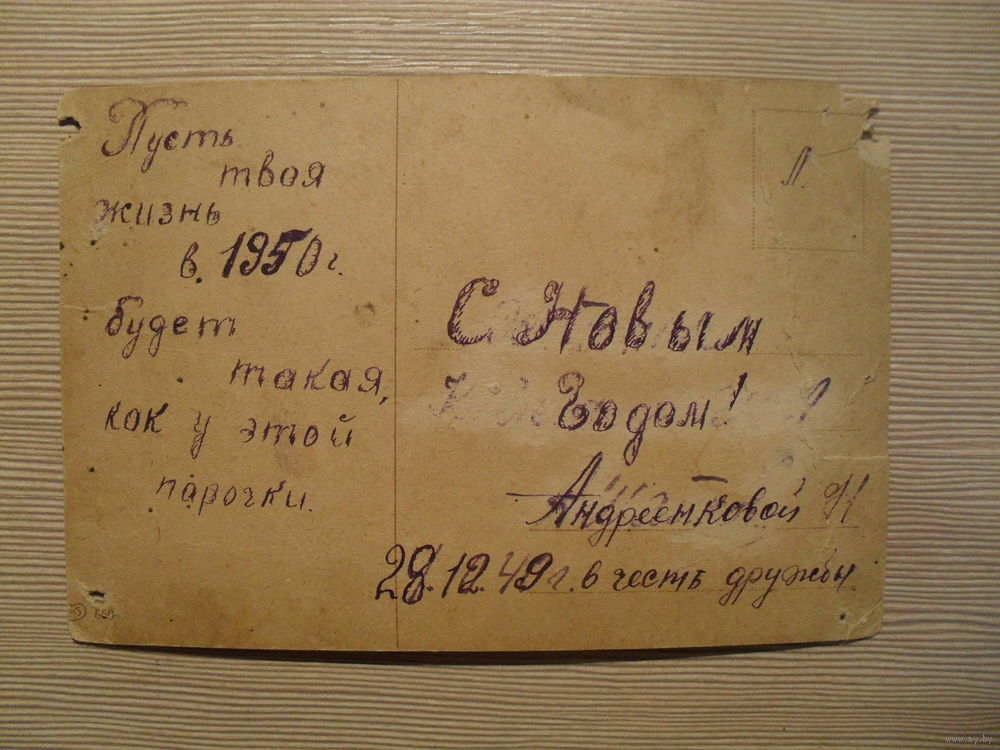 Пусть
твоя
жизнь
в 1950г.
будет
такая,
как у этой
парочки.
Л.
С Новым
Годом!
Андреенковой Н
28.12.49г. в честь дружбы.
www.ay.by